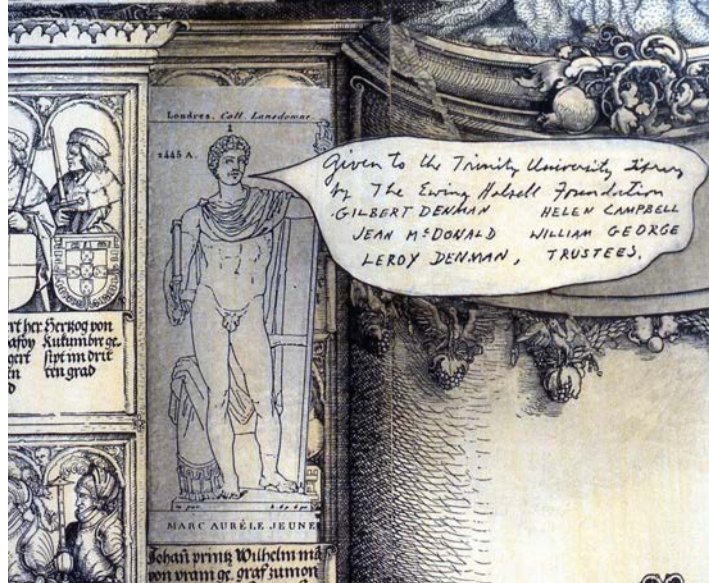 Londres. Coll. Lansdowne
1
2445 A.
Given to the Trinity University Library
by The Ewing Halsell Foundation
GILBERT DENMAN HELEN CAMPBELL
JEAN McDONALD WILLIAM GEORGE
LEROY DENMAN, TRUSTEES.
ert her Hertzog von
afoy Kukumbre ge-
gert sipt im drit
ten grad
MARC AURÈLE JEUNE
Johañ printz Wilhelm mā
von vram ge. graf zu mon